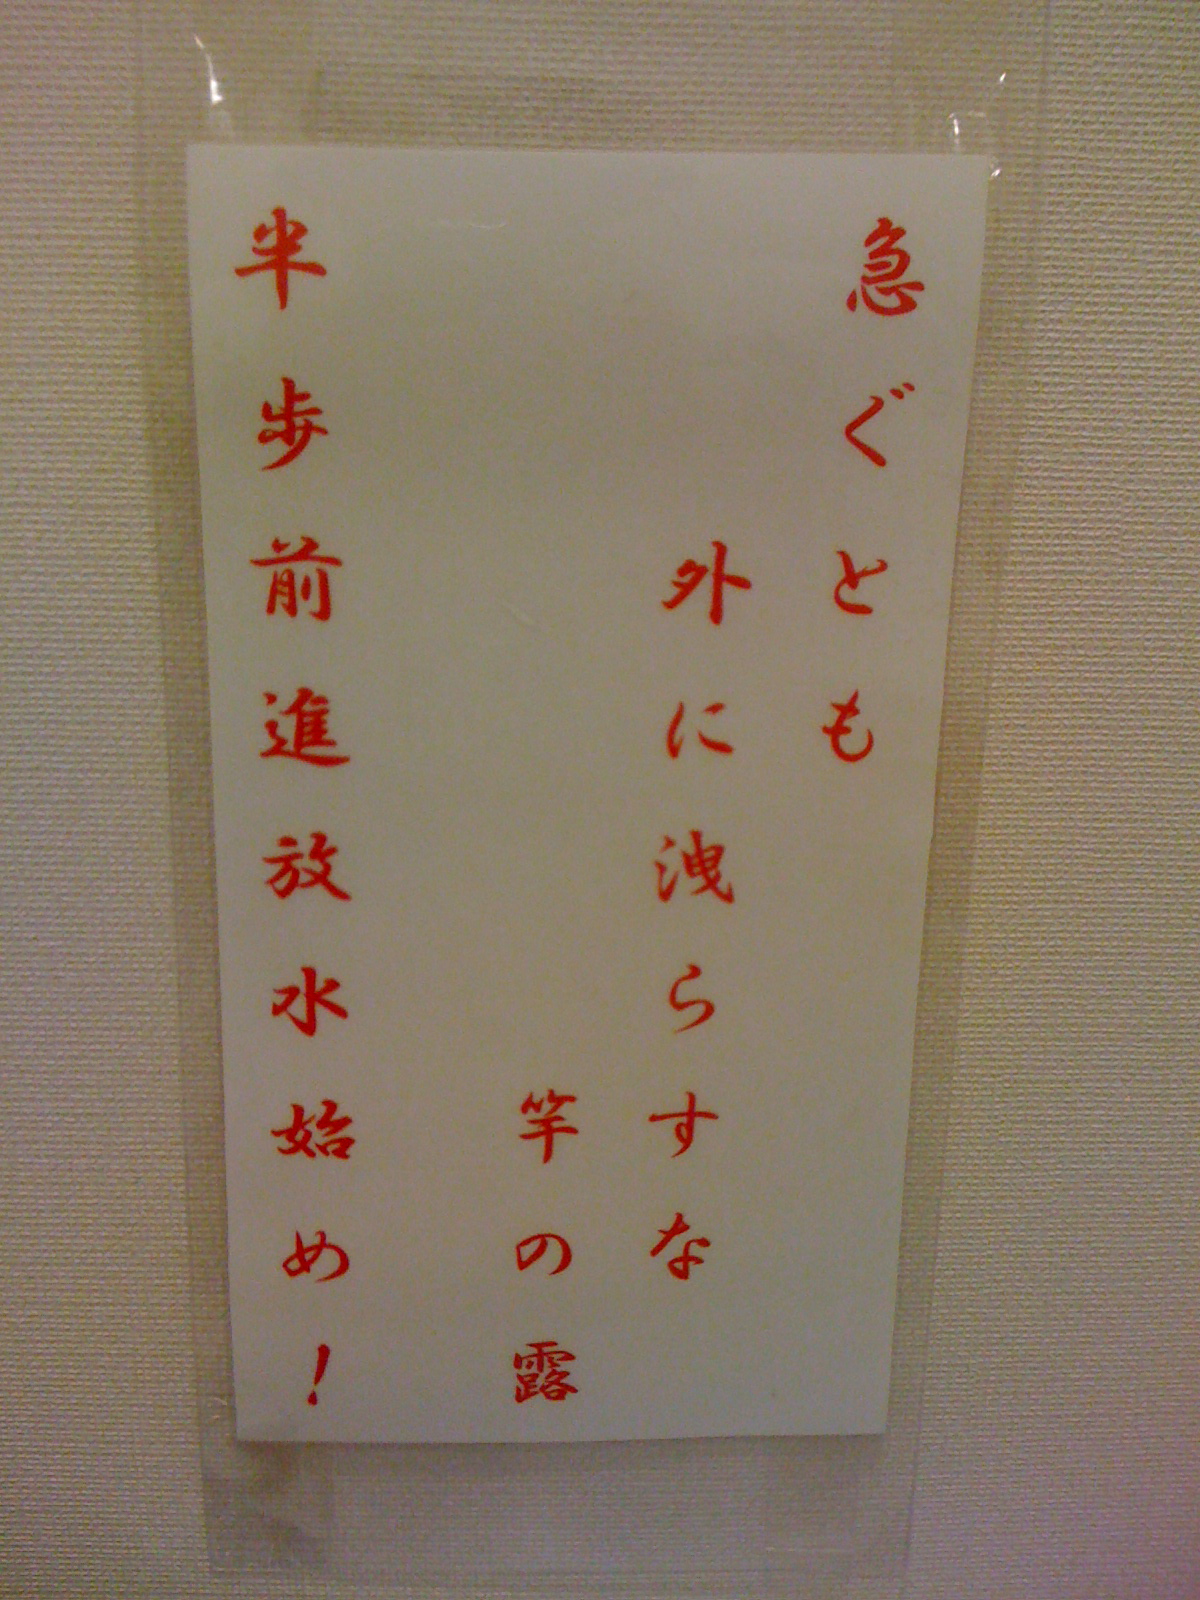 急ぐとも
外に洩らすな
竿の露
半歩前進放水始め!